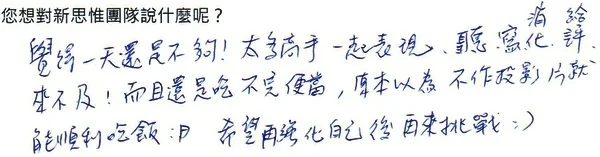 您想對新思惟團隊說什麼呢？
覺得一天還是不夠！太多高手一起表現、聽、寫、消化、給評、
來不及！而且還是吃不完便當，原本以為不作投影片就
能順利吃飯:p 希望再強化自己後再來挑戰:)